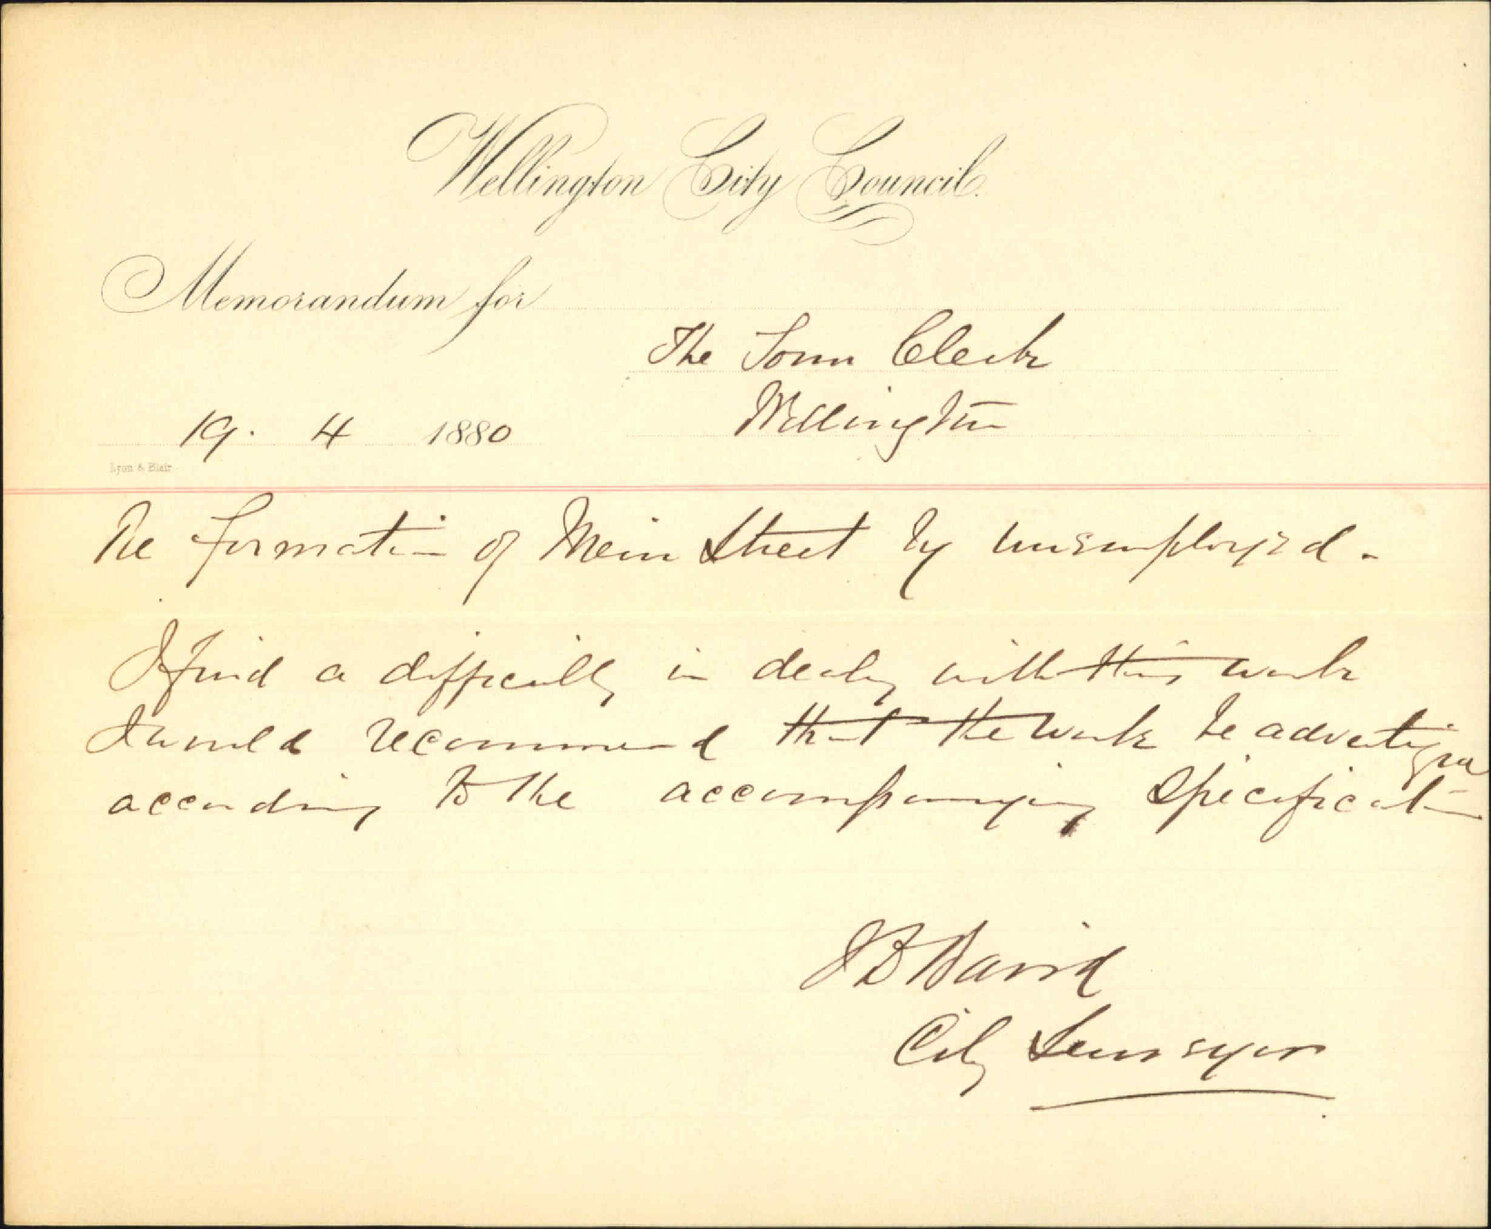 Wellington City Council.
Memorandum for
The Town Clerk
Wellington
19. 4 1880
Lyon & Blair
Re formation of Mein Street by unemployed -
I find a difficulty in dealing with this work
I would recommend that the work be advertised
according to the accompanying specification
J D Baird
City Surveyor